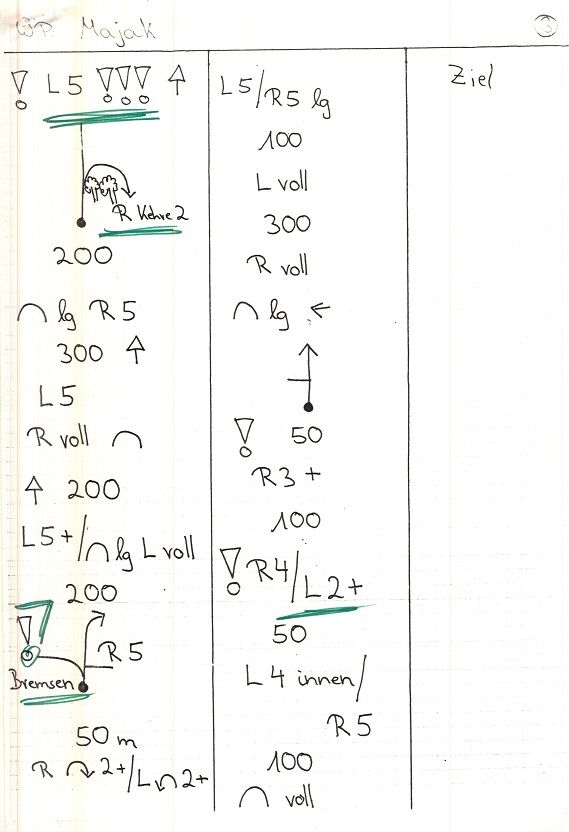 WP. Majak
3
! L5 !!! ↑
R Kehre 2
200
⌒ lg R5
300 ↑
L5
R voll ⌒
↑ 200
L5+/⌒ lg L voll
200
!
R5
Bremsen
50 m
R ↷ 2+/L ↶ 2+
L5/R5 lg
100
L voll
300
R voll
⌒ lg ←
! 50
R3+
100
! R4/L2+
50
L4 innen/
R5
100
⌒ voll
Ziel